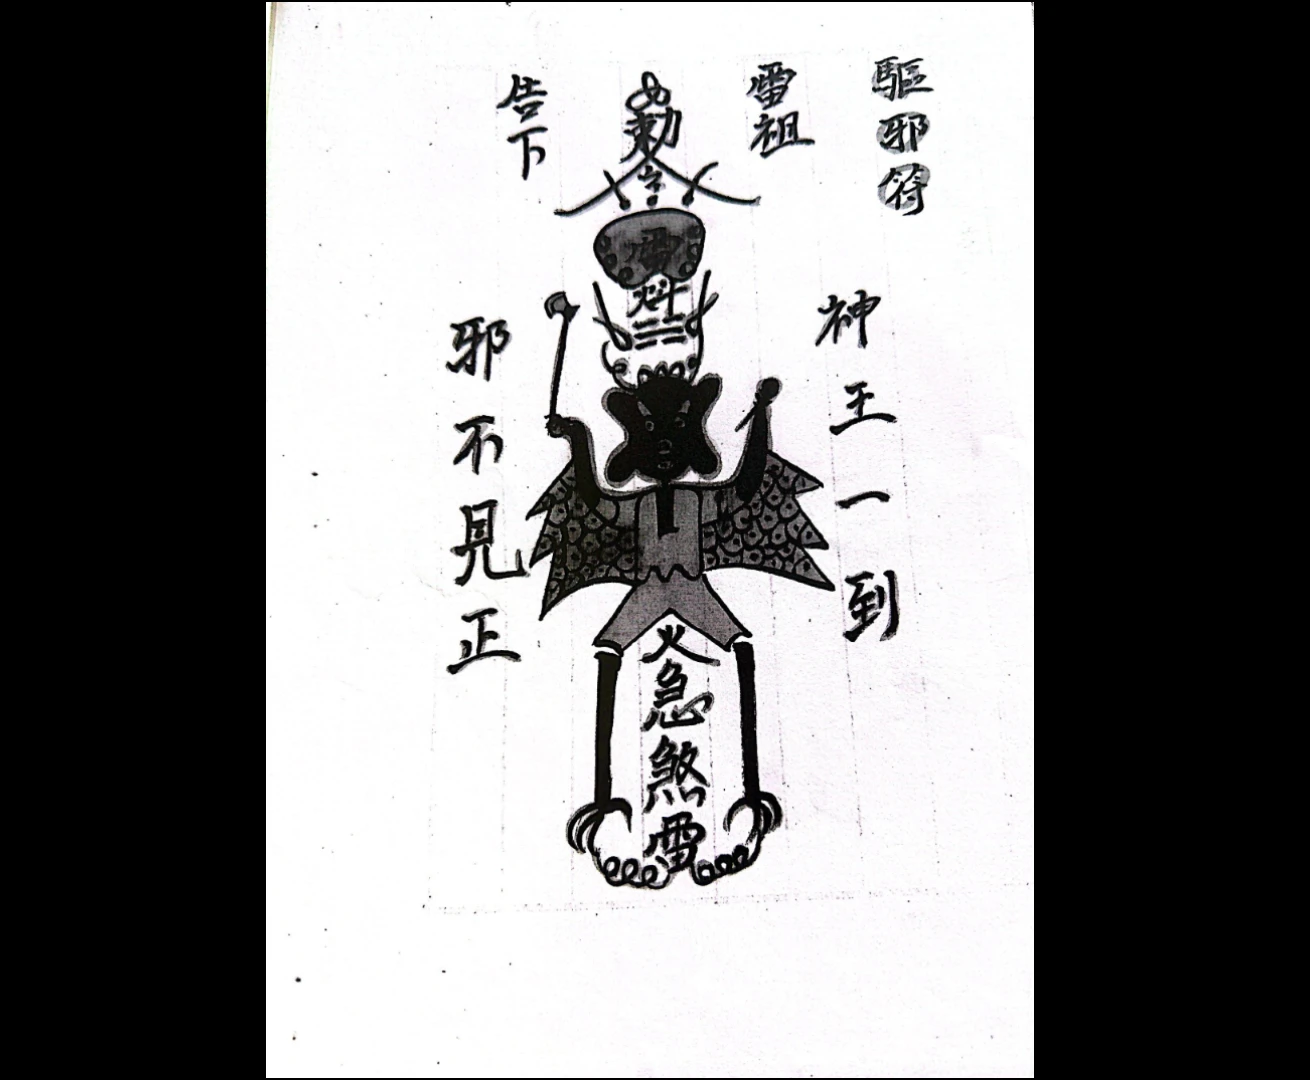 驅邪符
雷祖
敕
令
雷
告下
神王一到
邪不見正
火急煞雷